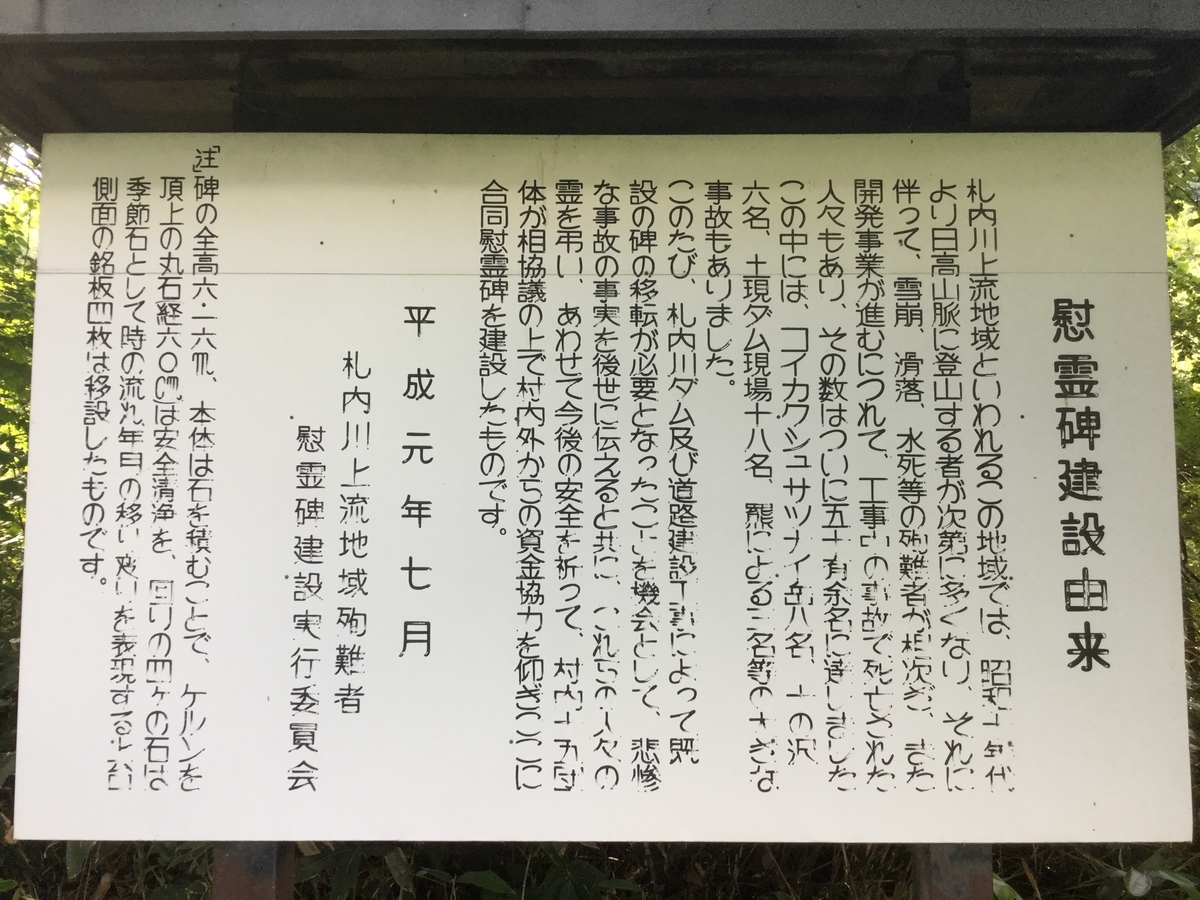 慰霊碑建設由来
札内川上流地域といわれるこの地域では、昭和十年代
より日高山脈に登山する者が次第に多くなり、それに
伴って、雪崩、滑落、水死等の殉難者が相次ぎ、また
開発事業が進むにつれて、工事中の事故で死亡された
人々もあり、その数はついに五十有余名に達しました
この中には、コイカクシュサツナイ岳八名、十の沢
六名、土現ダム現場十八名、熊による三名等の大きな
事故もありました。
このたび、札内川ダム及び道路建設工事によって既
設の碑の移転が必要となったことを機会として、悲惨
な事故の事実を後世に伝えると共に、これらの人々の
霊を弔い、あわせて今後の安全を祈って、村内
体が相協議の上で村内外からの資金協力を仰ぎここに
合同慰霊碑を建設したものです。
平成元年七月
札内川上流地域殉難者
慰霊碑建設実行委員会
「注」碑の全高六・一六m、本体は石を積むことで、ケルンを
頂上の丸石経六〇cmは安全清浄を、回りの四ヶの石は
季節石として時の流れ年月の移り変りを表現する
側面の銘板四枚は移設したものです。